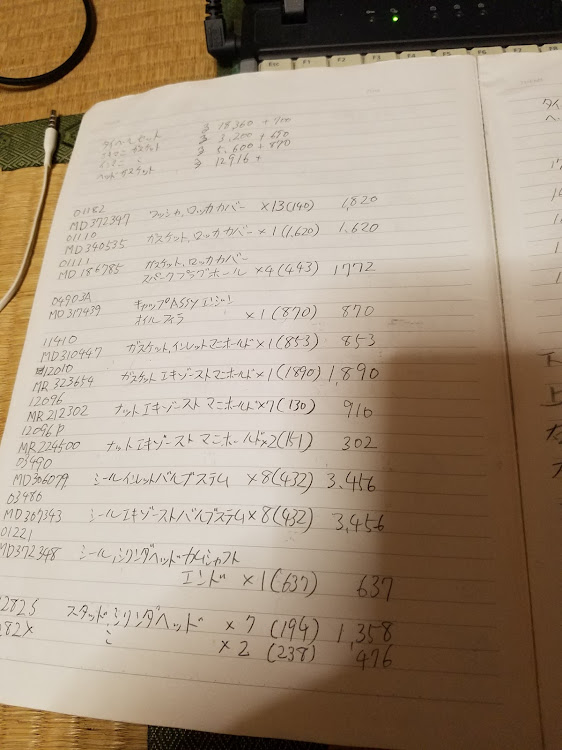 タイベルセット 多 18,360 + 700
ガスケット 多 3,200 + 680
多 5,600 + 870
ヘッドガスケット 多 12916 +
01182
MD372397 ワッシャ,ロッカカバー ×13(140) 1,820
01110
MD340535 ガスケット,ロッカカバー ×1(1,620) 1,620
01111
MD186785 ガスケット,ロッカカバー
スパークプラグホール ×4(443) 1772
04903A
MD317439 キャップASSY エンジン
オイルフィラ ×1(870) 870
11410
MD310447 ガスケット,インレットマニホールド×1(853) 853
12010
MR323654 ガスケットエキゾーストマニホールド×1(1890) 1,890
12096
MR212302 ナットエキゾーストマニホールド×7(130) 910
12096P
MR224500 ナットエキゾーストマニホールド×2(151) 302
03490
MD306079 シールインレットバルブステム ×8(432) 3,456
03480
MD307343 シールエキゾーストバルブステム×8(432) 3,456
01221
MD372348 シール,シリンダヘッドカムシャフト
エンド ×1(637) 637
282S スタッドシリンダヘッド ×7(194) 1,358
282X 〃 ×2(238) 476